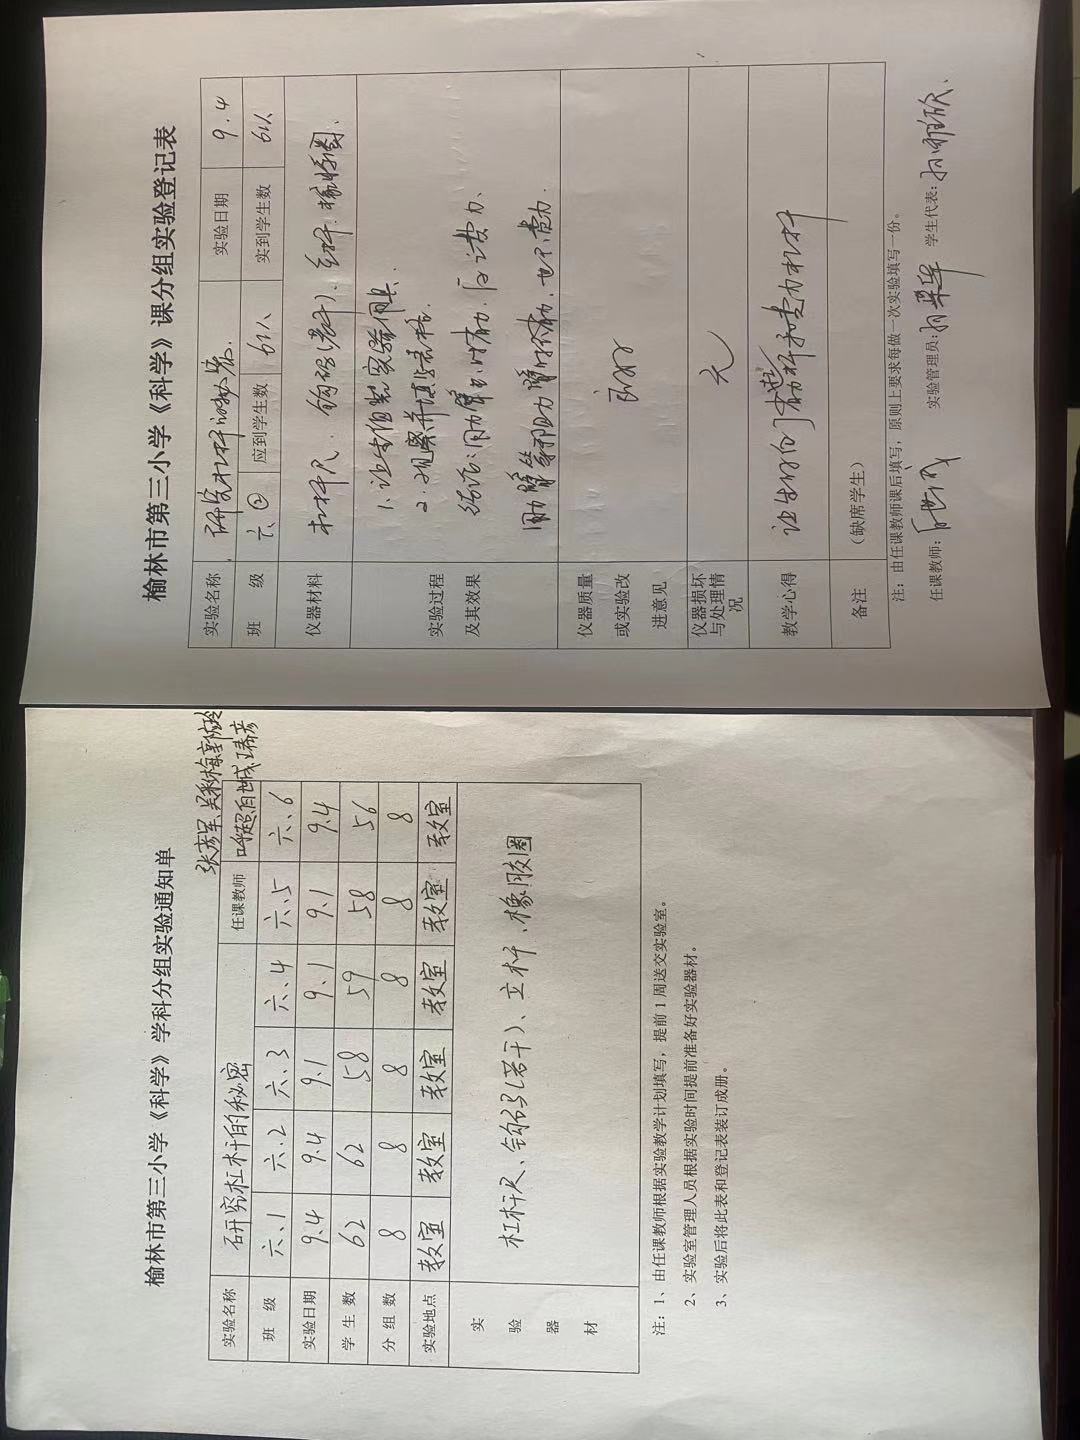 榆林市第三小学《科学》学科分组实验通知单
张彦军、吴秋梅、郭 玲
实验名称 研究杠杆的秘密 任课教师 呼超、白世成、王春彦
班 级 六、1 六、2 六、3 六、4 六、5 六、6
实验日期 9.4 9.4 9.1 9.1 9.1 9.4
学 生 数 62 62 58 59 58 56
分 组 数 8 8 8 8 8 8
实验地点 教室 教室 教室 教室 教室 教室
实验器材 杠杆尺、钩码(若干)、立杆、橡胶圈
注：1、由任课教师根据实验教学计划填写，提前1周送交实验室。
2、实验室管理人员根据实验时间提前准备好实验器材。
3、实验后将此表和登记表装订成册。
榆林市第三小学《科学》课分组实验登记表
实验名称 研究杠杆的秘密. 实验日期 9.4
班 级 六② 应到学生数 61人 实到学生数 61人
仪器材料 杠杆尺、钩码(若干)、立杆、橡胶圈.
实验过程及其效果
1.让学生组装实验仪器.
2.观察并填写表格.
结论:
仪器质量或实验改进意见 良好
仪器损坏与处理情况 无
教学心得
备注 （缺席学生）
注：由任课教师课后填写，原则上要求每做一次实验填写一份。
任课教师：白世成 实验管理员： 学生代表：